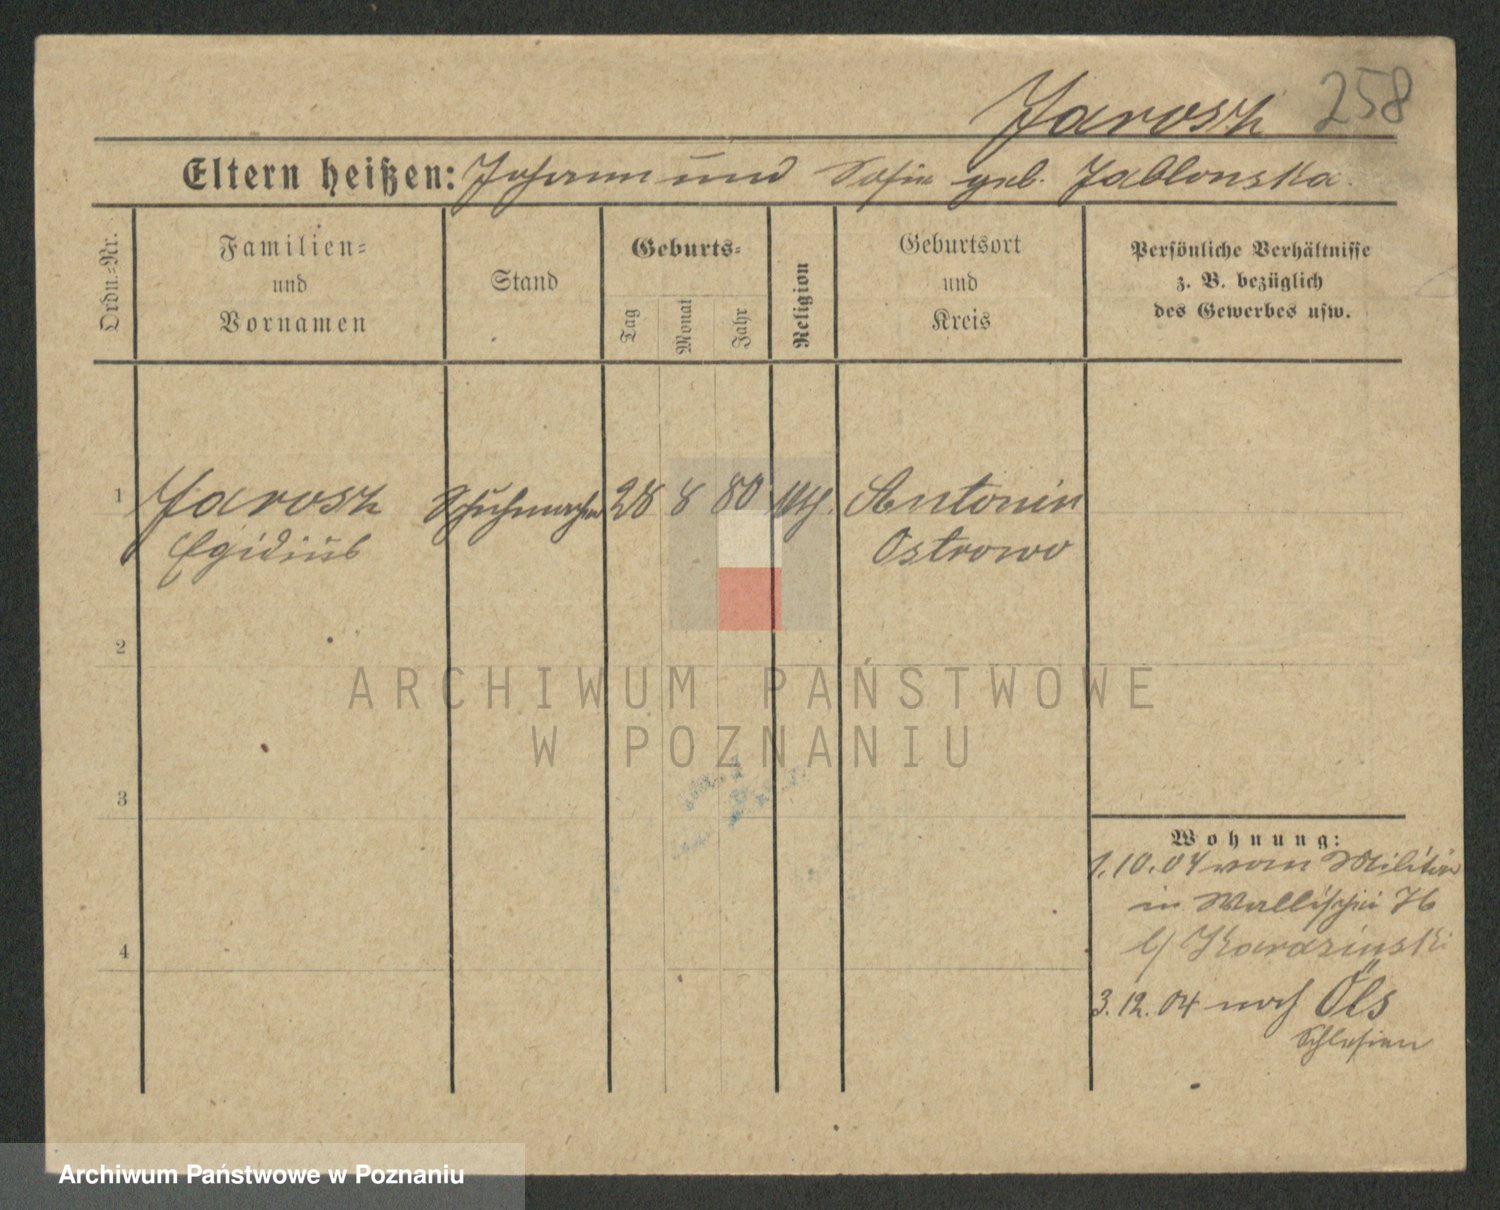 Jarosz 258
Eltern heißen: Johann und Sofie geb. Jablonska.
Ordn.-Nr.
Familien-
und
Vornamen
Stand
Geburts-
Tag
Monat
Jahr
Religion
Geburtsort
und
Kreis
Persönliche Verhältnisse
z. B. bezüglich
des Gewerbes usw.
1 Jarosz Schuhmacher 28 8 80 kth. Antonin
Egidius Ostrowo
2
ARCHIWUM PAŃSTWOWE
W POZNANIU
3
Wohnung:
1.10.04 vom Militär
in Wallischei 76
b/ Karasinski
4
3.12.04 nach Öls
Schlesien
Archiwum Państwowe w Poznaniu